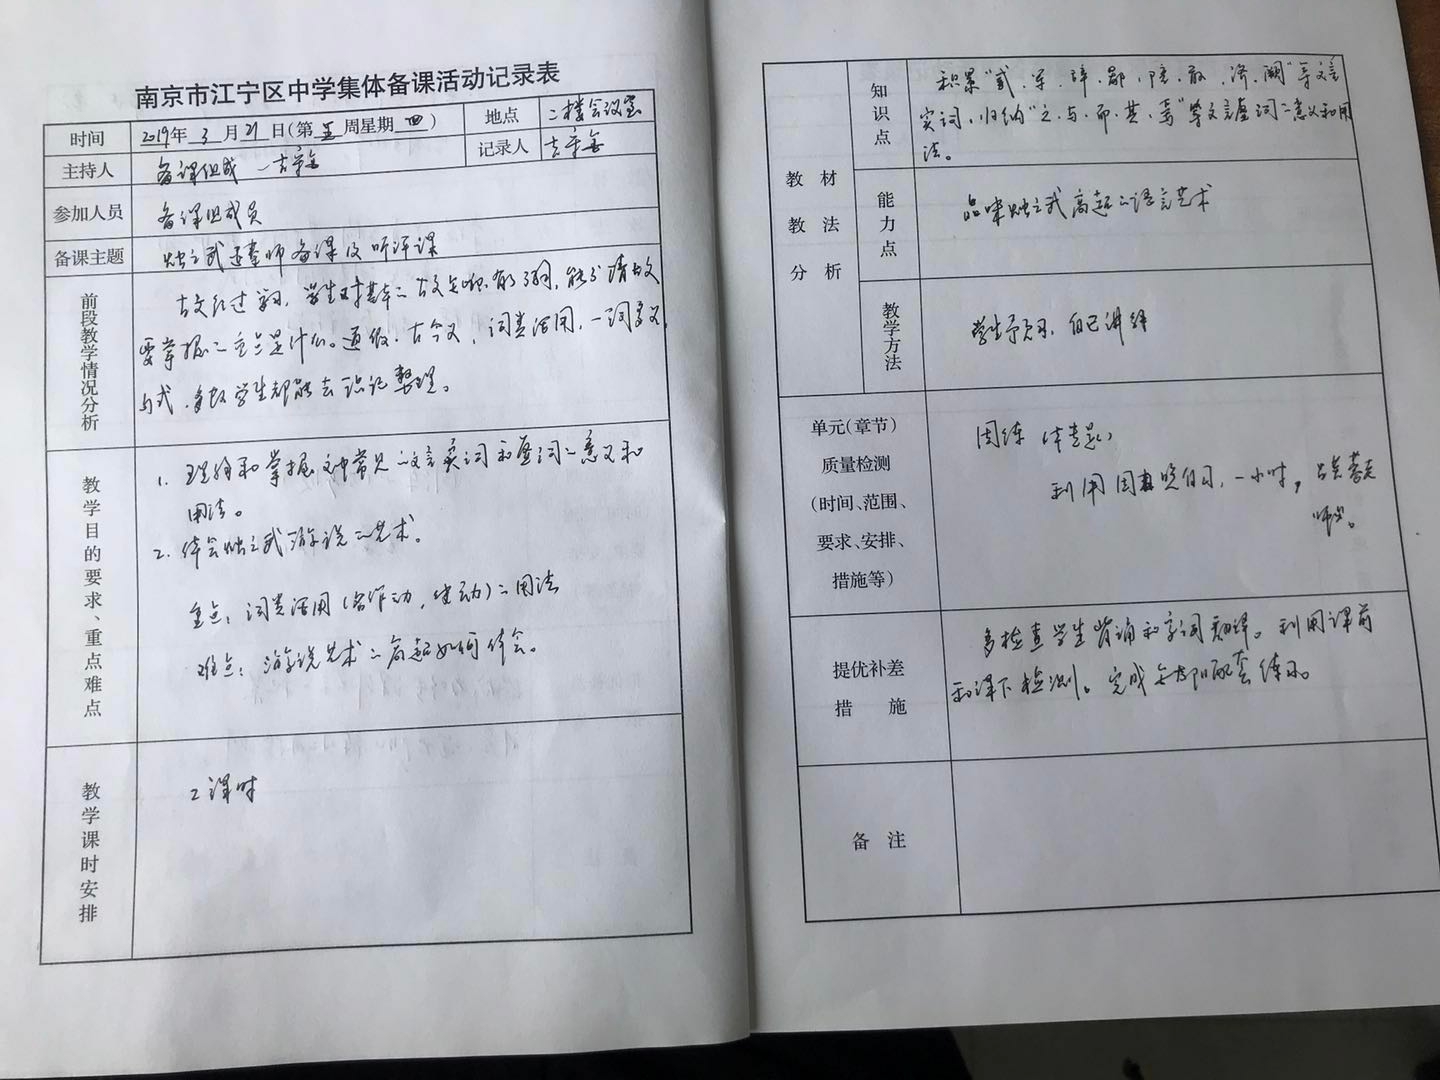 南京市江宁区中学集体备课活动记录表
时间 2019年 3 月 21 日(第 五 周星期 四 ) 地点 二楼会议室
主持人 备课组成 记录人
参加人员 备课组成员
备课主题 烛之武退秦师备课及听评课
前段教学情况分析
古文经过学习,学生对基本的古文知识有了了解,能分清古文
要掌握的重点是什么。通假、古今义,词类活用,一词多义
句式,多数学生都能去识记整理。
教学目的要求、重点难点
1. 理解和掌握文中常见的文言实词和虚词的意义和
用法。
2. 体会烛之武游说的艺术。
重点:词类活用(名作动,使动)的用法
难点:游说艺术的高超如何体会。
教学课时安排
2课时
教材教法分析
知识点
积累“贰、军、辞、鄙、陪、敢、济、阙”等文言
实词,归纳“之、与、而、其、焉”等文言虚词的意义和用
法。
能力点
品味烛之武高超的语言艺术
教学方法
学生预习,自己讲解
单元(章节)
质量检测
(时间、范围、
要求、安排、
措施等)
周练
利用周 晚自习,一小时,
提优补差
措 施
多检查学生背诵和字词翻译。利用课前
和课下检测。完成 配套练习。
备 注